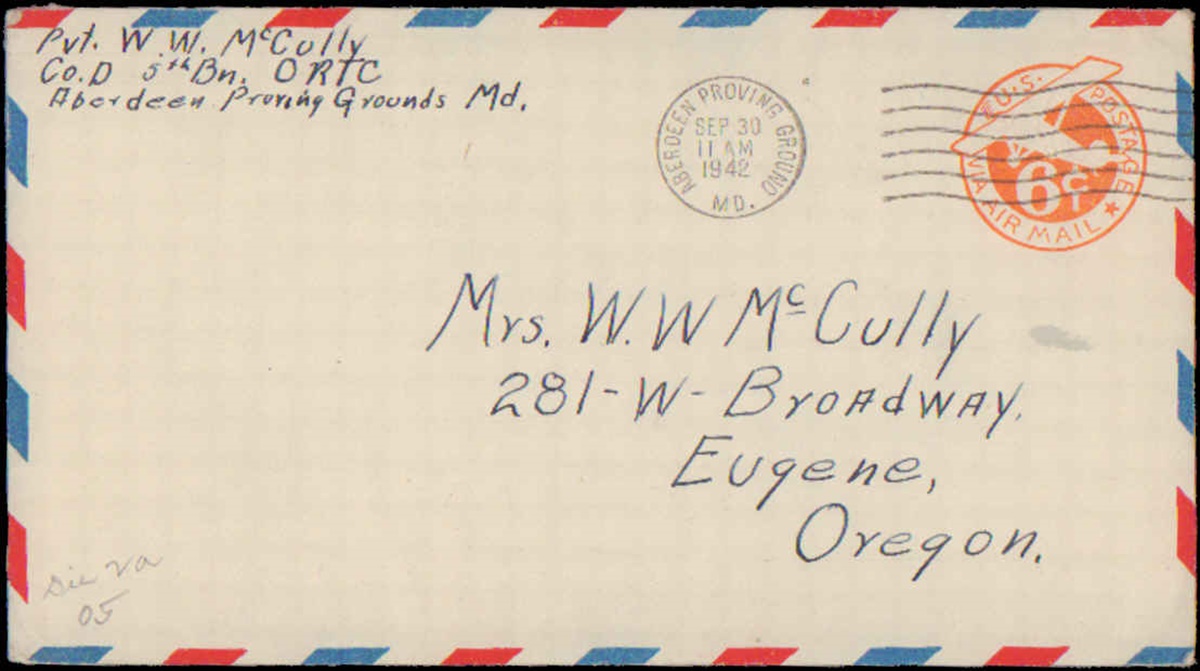 Pvt. W.W. McCully
Co.D 5th Bn. ORTC
Aberdeen Proving Grounds Md.
ABERDEEN PROVING GROUND
SEP 30
11 AM
1942
MD.
U.S. POSTAGE
6¢
VIA AIR MAIL
Mrs. W.W McCully
281-W-Broadway.
Eugene,
Oregon.
05